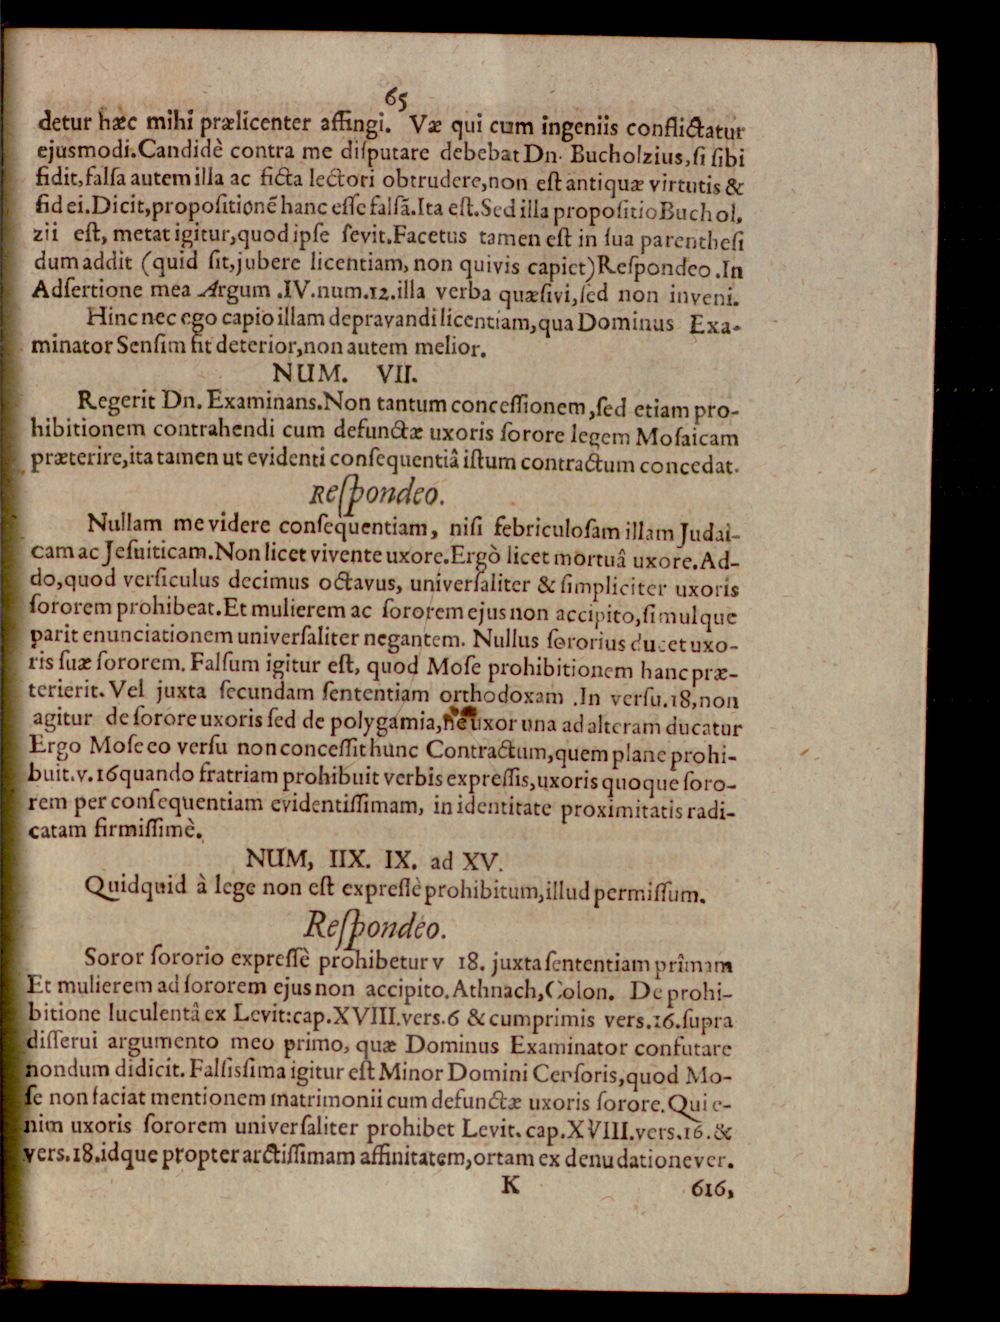 65
detur hæc mihi prælicenter affingi. Væ qui cum ingeniis conflictatur
ejusmodi.Candidè contra me diſputare debebat Dn. Bucholzius,ſi ſibi
fidit,falſa autem illa ac ficta lectori obtrudere,non eſt antiquæ virtutis &
fidei.Dicit,propoſitionē hanc eſſe falſā.Ita eſt.Sed illa propoſitio Buchol.
zii eſt, metat igitur,quod ipſe ſevit.Facetus tamen eſt in ſua parentheſi
dum addit (quid ſit,jubere licentiam, non quivis capiet)Reſpondeo.In
Adſertione mea Argum.IV.num.12.illa verba quæſivi,ſed non inveni.
Hinc nec ego capio illam depravandi licentiam,qua Dominus Exa-
minator Senſim fit deterior,non autem melior.
NUM. VII.
Regerit Dn. Examinans.Non tantum conceſſionem,ſed etiam pro-
hibitionem contrahendi cum defunctæ uxoris ſorore legem Moſaicam
præterire,ita tamen ut evidenti conſequentiâ iſtum contractum concedat.
Reſpondeo.
Nullam me videre conſequentiam, niſi febriculoſam illam Judai-
cam ac Jeſuiticam.Non licet vivente uxore.Ergò licet mortuâ uxore.Ad-
do,quod verſiculus decimus octavus, univerſaliter & ſimpliciter uxoris
ſororem prohibeat.Et mulierem ac ſororem ejus non accipito,ſimulque
parit enunciationem univerſaliter negantem. Nullus ſororius ducet uxo-
ris ſuæ ſororem. Falſum igitur eſt, quod Moſe prohibitionem hanc præ-
terierit. Vel juxta ſecundam ſententiam orthodoxam .In verſu.18,non
agitur de ſorore uxoris ſed de polygamia,ne uxor una ad alteram ducatur
Ergo Moſe eo verſu non conceſſit hunc Contractum,quem plane prohi-
buit.v.16 quando fratriam prohibuit verbis expreſſis,uxoris quoque ſoro-
rem per conſequentiam evidentiſſimam, in identitate proximitatis radi-
catam firmiſſimè.
NUM, IIX. IX. ad XV.
Quidquid à lege non eſt expreſſè prohibitum,illud permiſſum.
Reſpondeo.
Soror ſororio expreſſè prohibetur v 18. juxta ſententiam primam
Et mulierem ad ſororem ejus non accipito.Athnach,Colon. De prohi-
bitione luculentâ ex Levit:cap.XVIII.verſ.6 & cumprimis verſ.16.ſupra
diſſerui argumento meo primo, quæ Dominus Examinator confutare
nondum didicit. Falſissima igitur eſt Minor Domini Cenſoris,quod Mo-
ſe non faciat mentionem matrimonii cum defunctæ uxoris ſorore.Qui e-
nim uxoris ſororem univerſaliter prohibet Levit. cap.XVIII.verſ.16.&
verſ.18.idque propter arctiſſimam affinitatem,ortam ex denudatione ver.
K 616,